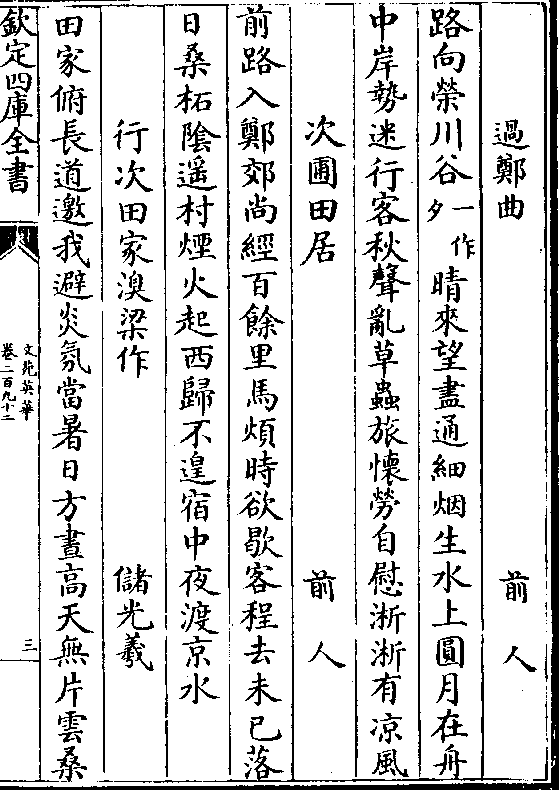 過鄭曲　前人
路向榮川谷一作夕晴來望盡通細烟生水上圓月在舟
中岸勢迷行客秋聲亂草蟲旅懷勞自慰淅淅有凉風
次圃田居　前人
前路入鄭郊尚經百餘里馬煩時欲歇客程去未已落
日桑柘陰遥村煙火起西歸不遑宿中夜渡京水
行次田家溴梁作　儲光羲
田家俯長道邀我避炎氛當暑日方晝高天無片雲桑
欽定四庫全書
文苑英華
卷二百九十二
三